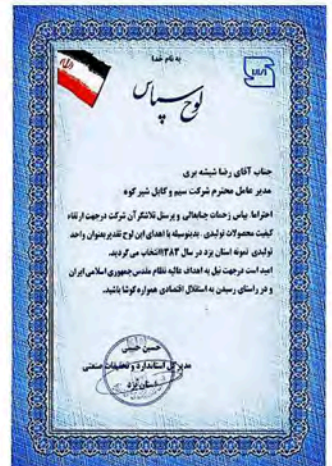 به نام خدا
لوح سپاس
جناب آقای رضا شیشه بری
مدیر عامل محترم شرکت سیم و کابل شیر کوه
احتراما بپاس زحمات جنابعالی و پرسنل تلاشگر آن شرکت درجهت ارتقاء
کیفیت محصولات تولیدی، بدینوسیله با اهدای این لوح تقدیر بعنوان واحد
تولیدی نمونه استان یزد در سال ۱۳۸۳ انتخاب می گردید.
امید است درجهت نیل به اهداف عالیه نظام مقدس جمهوری اسلامی ایران
و در راستای رسیدن به استقلال اقتصادی همواره کوشا باشید.
حسین حبیبی
مدیر کل استاندارد و تحقیقات صنعتی
استان یزد